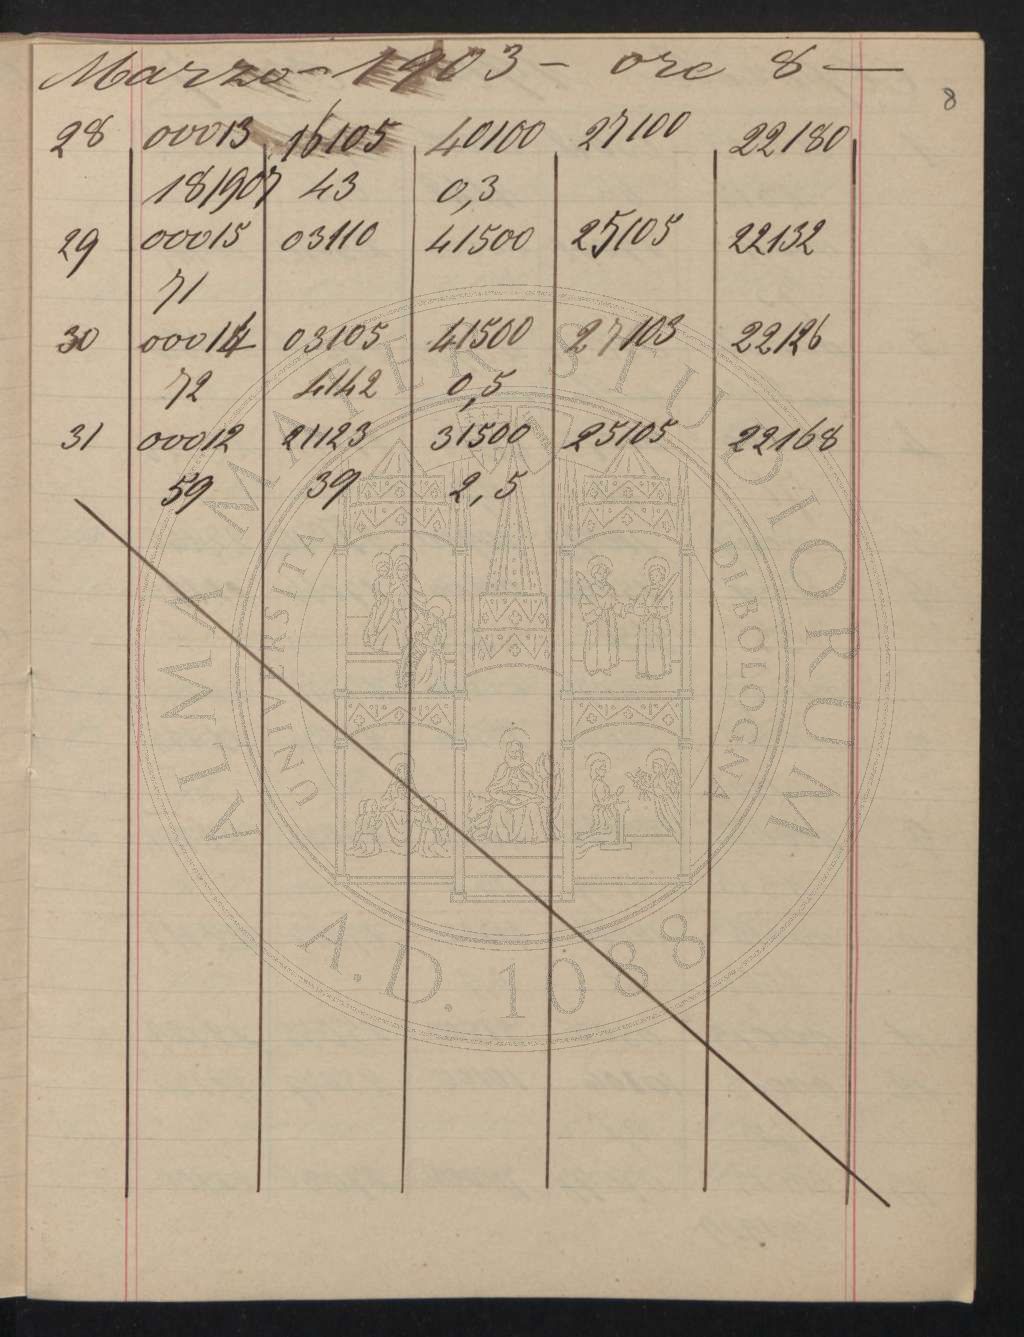 Marzo - 1903 - ore 8 -
8
28 00013 16105 40100 27100 22180
181907 43 0,3
29 00015 03110 41500 25105 22132
71
30 00014 03105 41500 27103 22126
72 4142 0,5
31 00012 21123 31500 25105 22168
59 39 2,5
ALMA MATER STUDIORUM
UNIVERSITA DI BOLOGNA
A.D. 1088